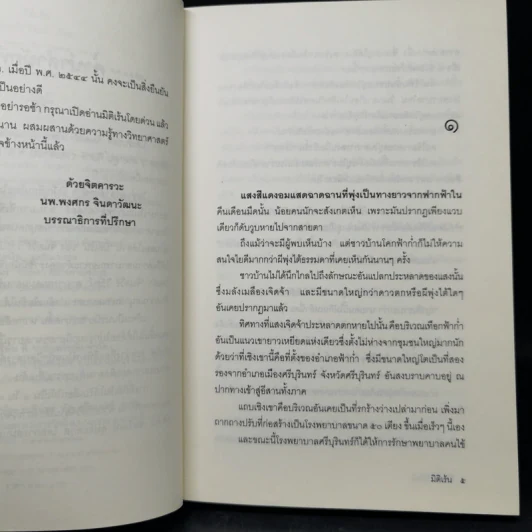 . เมื่อปี พ.ศ. ๒๕๔๔ นั้น คงจะเป็นสิ่งยืนยัน
เป็นอย่างดี
อย่ารอช้า กรุณาเปิดอ่านมิติเร้นโดยด่วน แล้ว
นาน ผสมผสานด้วยความรู้ทางวิทยาศาสตร์
ข้างหน้านี้แล้ว
ด้วยจิตคารวะ
นพ.พงศกร จินดาวัฒนะ
บรรณาธิการที่ปรึกษา
๑
แสงสีแดงอมแสดฉาดฉานที่พุ่งเป็นทางยาวจากฟากฟ้าใน
คืนเดือนมืดนั้น น้อยคนนักจะสังเกตเห็น เพราะมันปรากฏเพียงแวบ
เดียวก็ดับวูบหายไปจากสายตา
ถึงแม้ว่าจะมีผู้พบเห็นบ้าง แต่ชาวบ้านโคกฟ้าก่ำก็ไม่ให้ความ
สนใจใยดีมากกว่าผีพุ่งใต้ธรรมดาที่เคยเห็นกันนานๆ ครั้ง
ชาวบ้านไม่ได้นึกไกลไปถึงลักษณะอันแปลกประหลาดของแสงนั้น
ซึ่งมลังเมลืองเจิดจ้า และมีขนาดใหญ่กว่าดาวตกหรือผีพุ่งใต้ใดๆ
อันเคยปรากฏมาแล้ว
ทิศทางที่แสงเจิดจ้าประหลาดตกหายไปนั้น คือบริเวณเทือกฟ้าก่ำ
อันเป็นแนวเขายาวเหยียดแห่งเดียวซึ่งตั้งไม่ห่างจากชุมชนใหญ่มากนัก
ด้วยว่าที่เชิงเขานี้คือที่ตั้งของอำเภอฟ้าก่ำ ซึ่งมีขนาดใหญ่โตเป็นที่สอง
รองจากอำเภอเมืองศรีบุรินทร์ จังหวัดศรีบุรินทร์ อันสงบราบคาบอยู่ ณ
ปากทางเข้าสู่อีสานทั้งภาค
แถบเชิงเขาคือบริเวณอันเคยเป็นที่รกร้างว่างเปล่ามาก่อน เพิ่งมา
ถากถางปรับที่ก่อสร้างเป็นโรงพยาบาลขนาด ๕๐ เตียง ขึ้นเมื่อเร็วๆ นี้เอง
และขณะนี้โรงพยาบาลศรีบุรินทร์ก็ได้ให้การรักษาพยาบาลคนไข้
มิติเร้น ๕